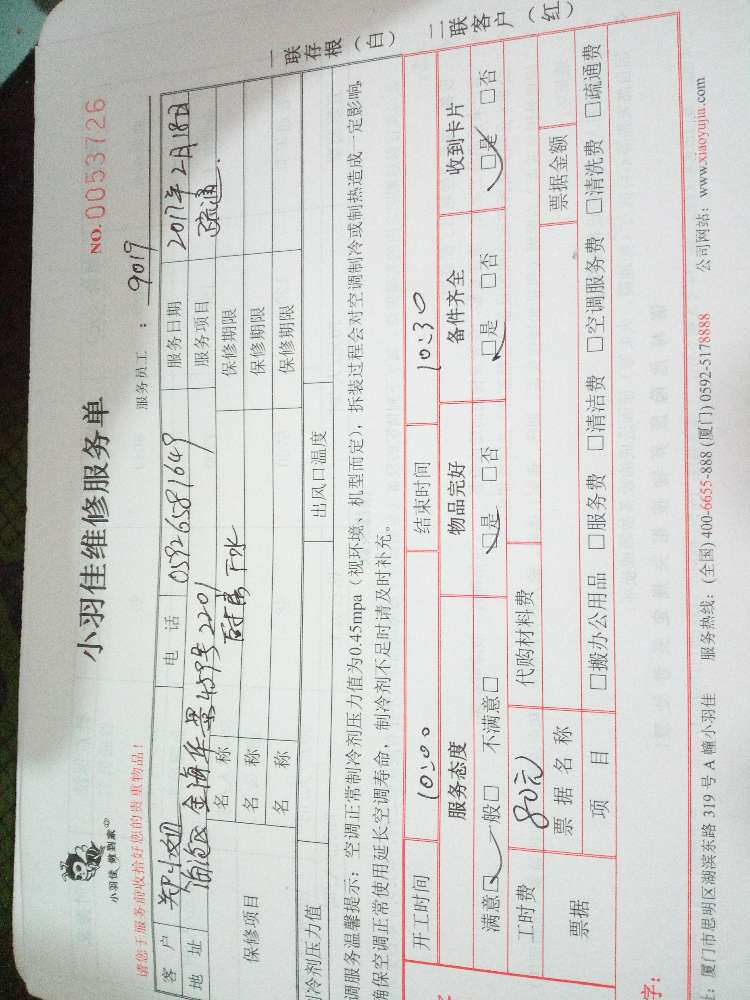 小羽佳 做到家
小羽佳维修服务单
NO. 0053726
请您于服务前收拾好您的贵重物品!
服务员工 : 9019
客 户 郑小姐 电 话 05926581649 服务日期 2017年2月18日
地 址 海沧区金海华景459号2201 服务项目 疏通
保修项目 名 称 厨房下水 保修期限
名 称 保修期限
名 称 保修期限
制冷剂压力值 出风口温度
调服务温馨提示:空调正常制冷剂压力值为0.45mpa(视环境、机型而定),拆装过程会对空调制冷或制热造成一定影响,
确保空调正常使用延长空调寿命,制冷剂不足时请及时补充。
一联存根(白) 二联客户(红)
开工时间 10:00 结束时间 10:30
服务态度 物品完好 备件齐全 收到卡片
满意□ 一般□ 不满意□ □是 □否 □是 □否 □是 □否
工时费 80元 代购材料费
票据 票 据 名 称 票据金额
项 目 □搬办公用品 □服务费 □清洁费 □空调服务费 □清洗费 □疏通费
字:
:厦门市思明区湖滨东路 319 号 A 幢小羽佳 服务热线:(全国) 400-6655-888 (厦门) 0592-5178888 公司网站:www.xiaoyujia.com